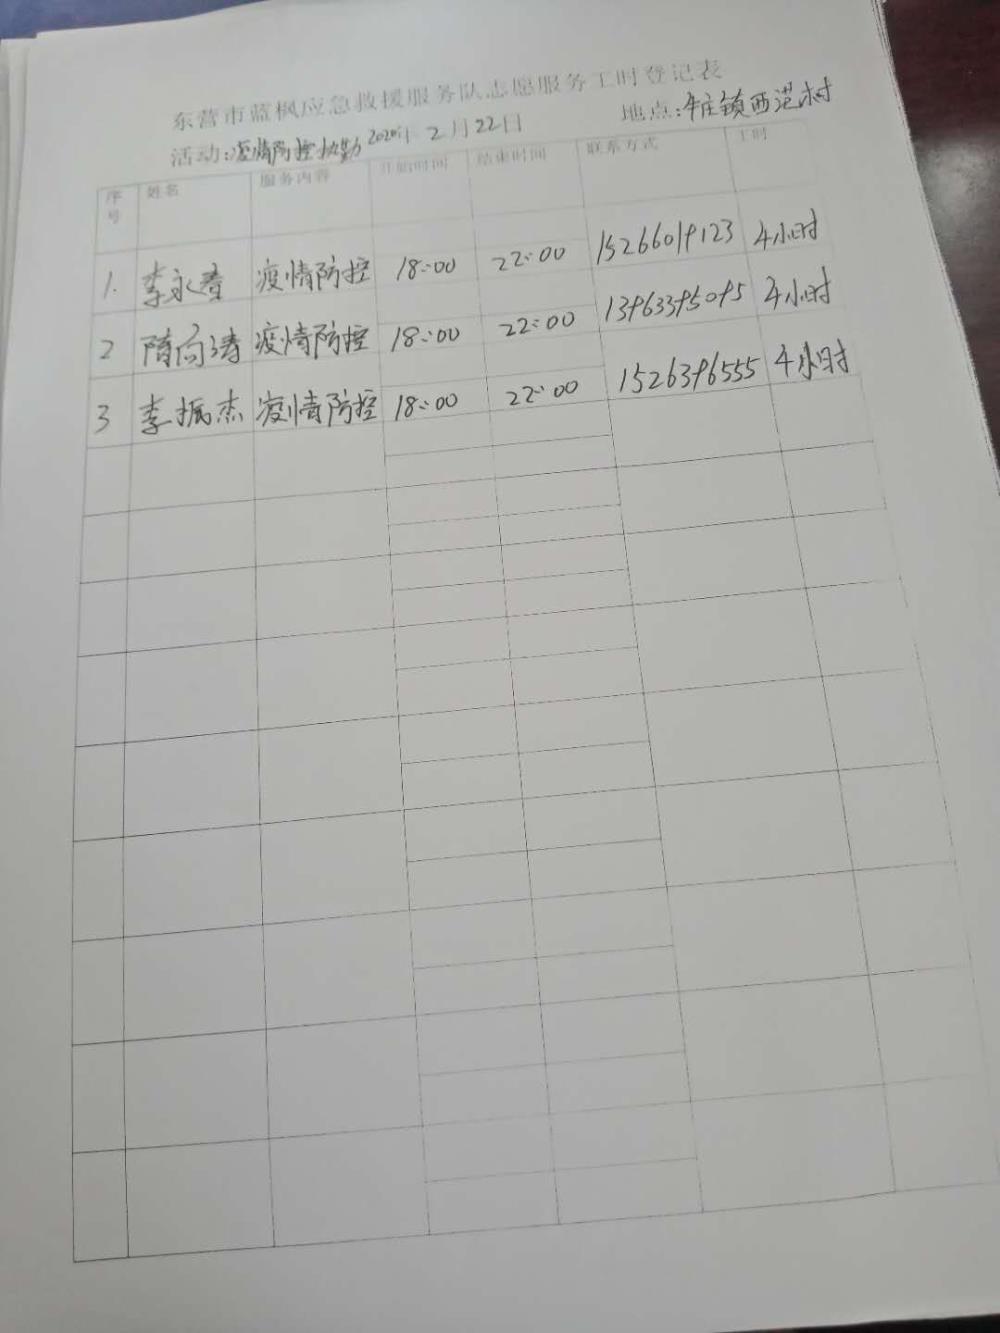 东营市蓝枫应急救援服务队志愿服务工时登记表
活动:疫情防控执勤 2020年 2月22日 地点:牛庄镇西范村
序号 姓名 服务内容 开始时间 结束时间 联系方式 工时
1. 李永春 疫情防控 18:00 22:00 15266019123 4小时
2 隋向涛 疫情防控 18:00 22:00 13963395095 4小时
3 李振杰 疫情防控 18:00 22:00 1526396555 4小时